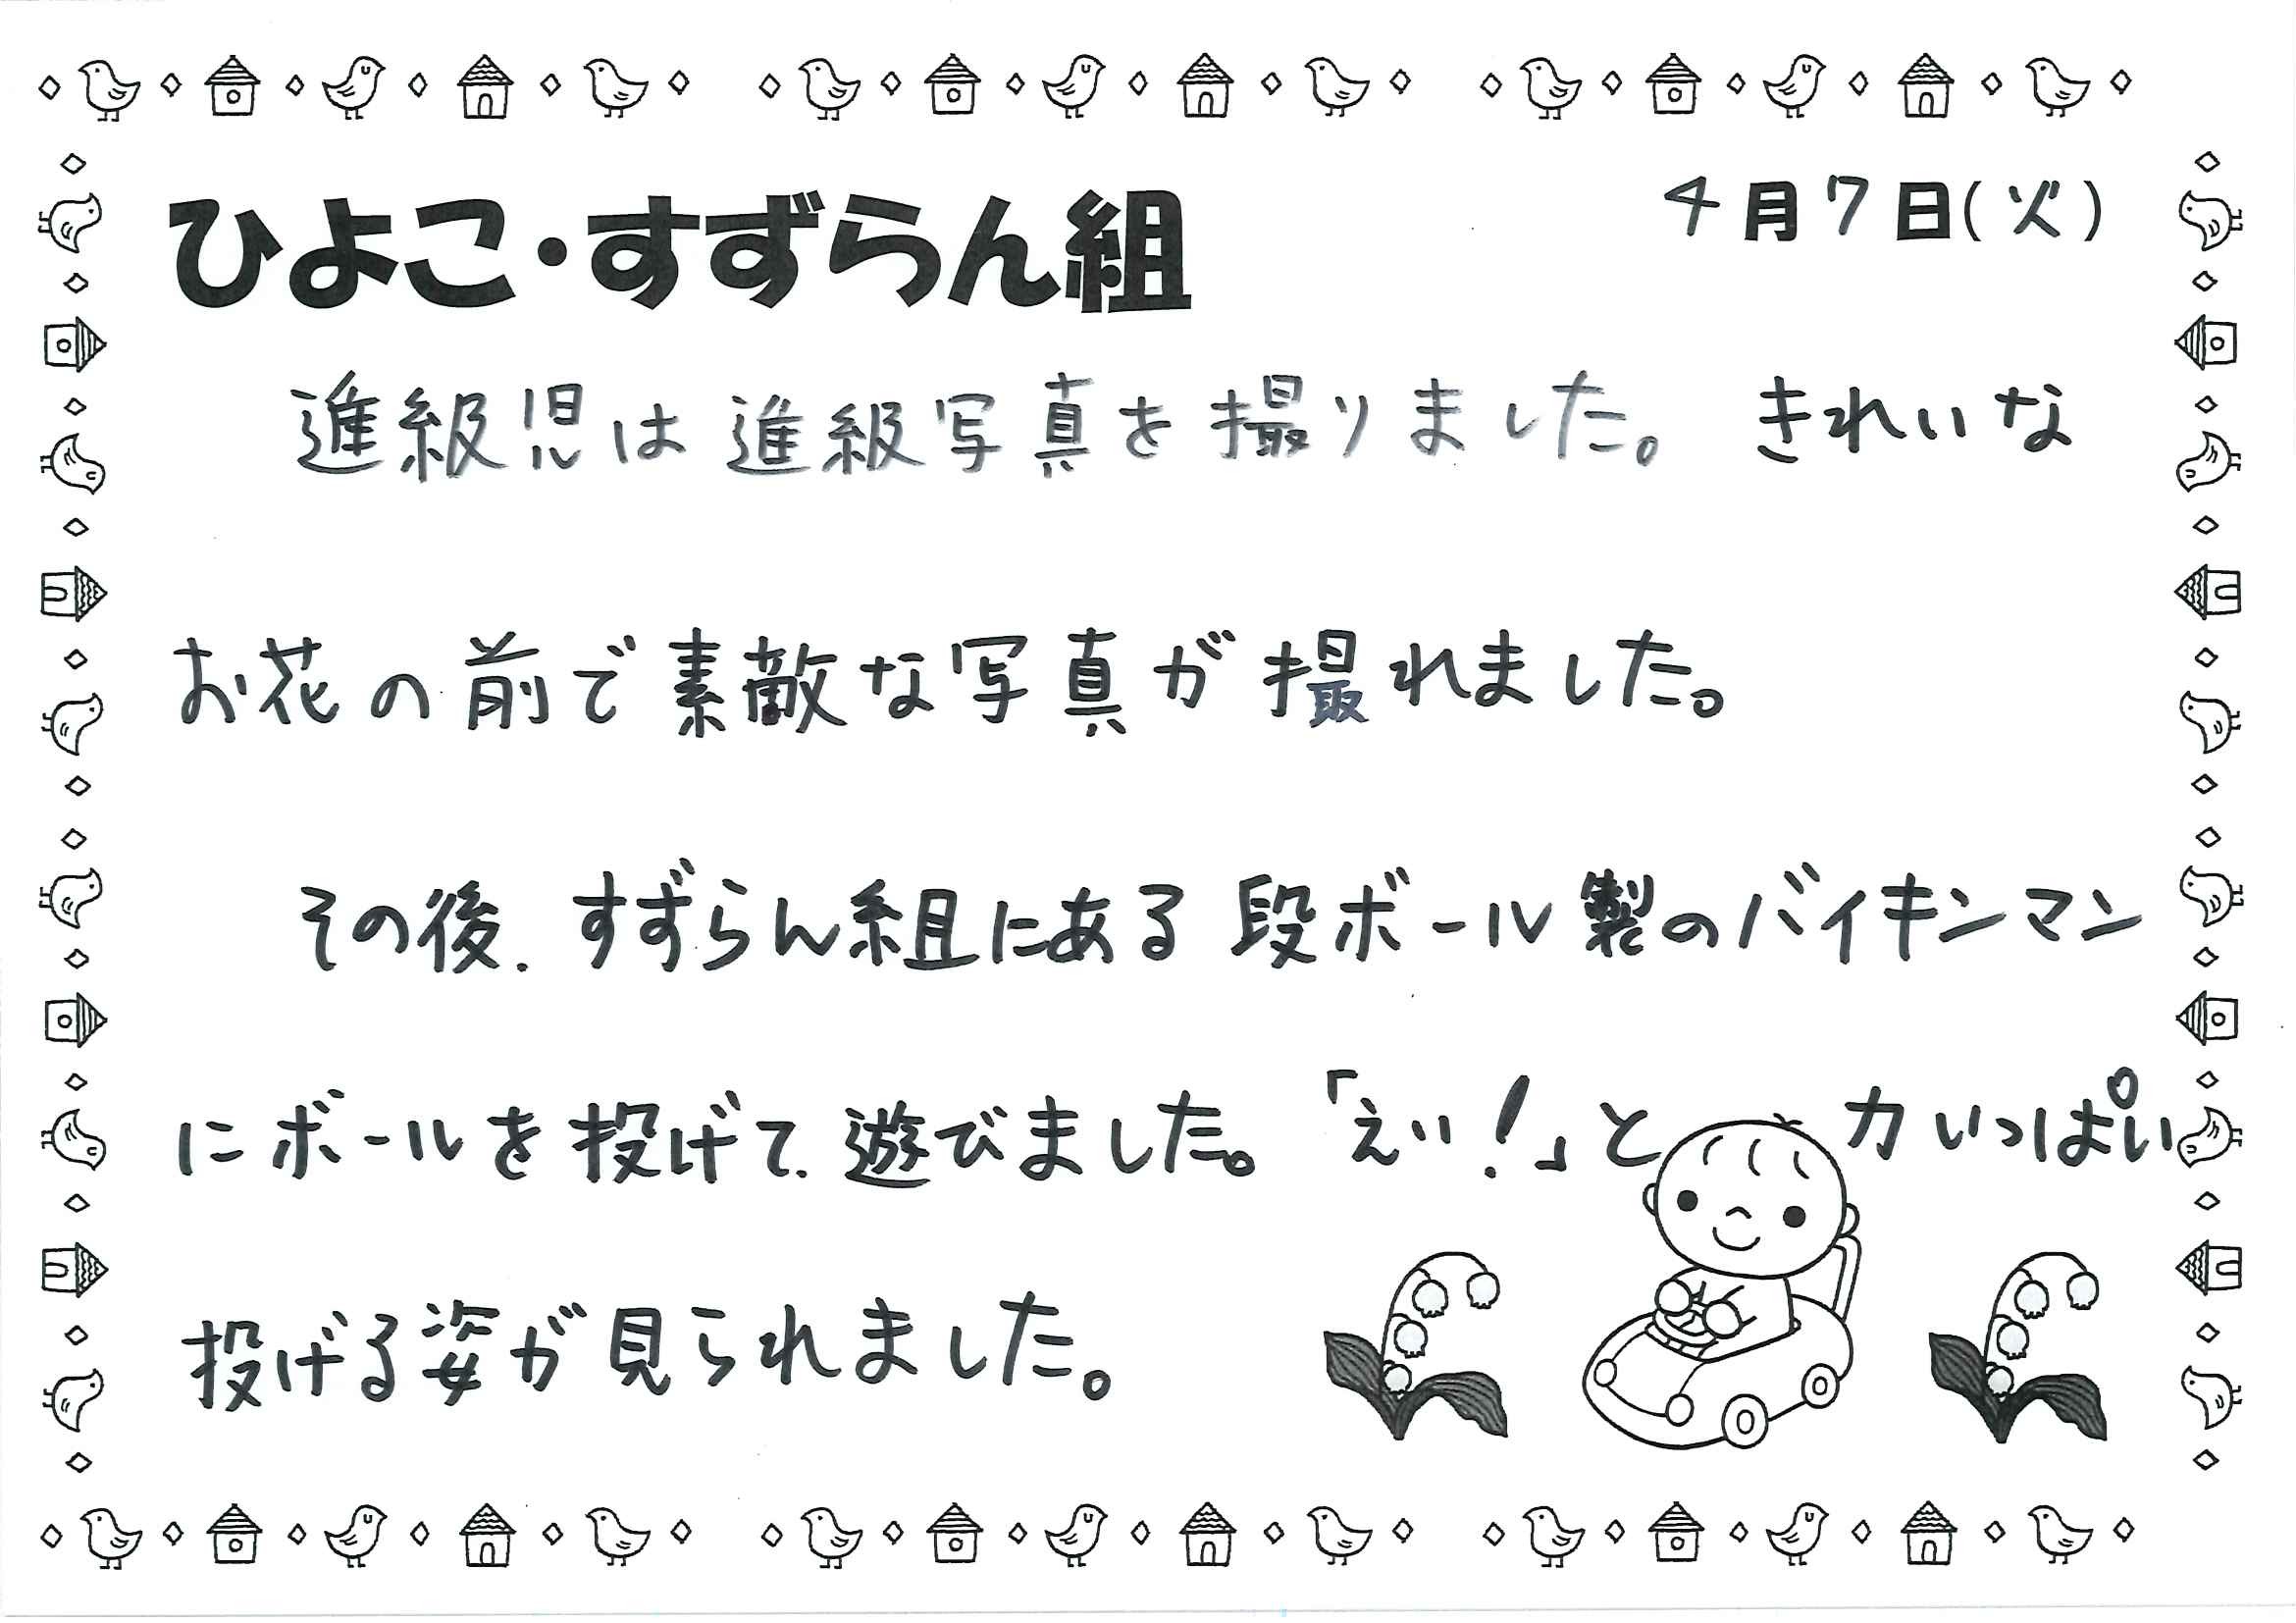 ひよこ・すずらん組
4月7日(火)
進級児は進級写真を撮りました。きれいな
お花の前で素敵な写真が撮れました。
その後、すずらん組にある段ボール製のバイキンマン
にボールを投げて、遊びました。「えい!」と力いっぱい
投げる姿が見られました。